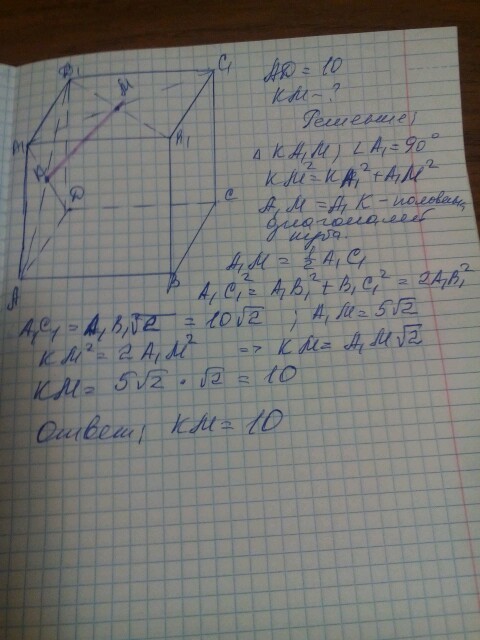 B₁
C₁
M
A₁
A₁
K
D
C
A
B
AD = 10
KM - ?
Решение:
Δ KA₁M; ∠A₁ = 90°
KM² = KA₁² + A₁M²
A₁M = A₁K - половины
диагоналей
куба.
A₁M = ½ A₁C₁
A₁C₁² = A₁B₁² + B₁C₁² = 2A₁B₁²
A₁C₁ = A₁B₁√2 = 10√2 ; A₁M = 5√2
KM² = 2A₁M² => KM = A₁M√2
KM = 5√2 · √2 = 10
Ответ; KM = 10